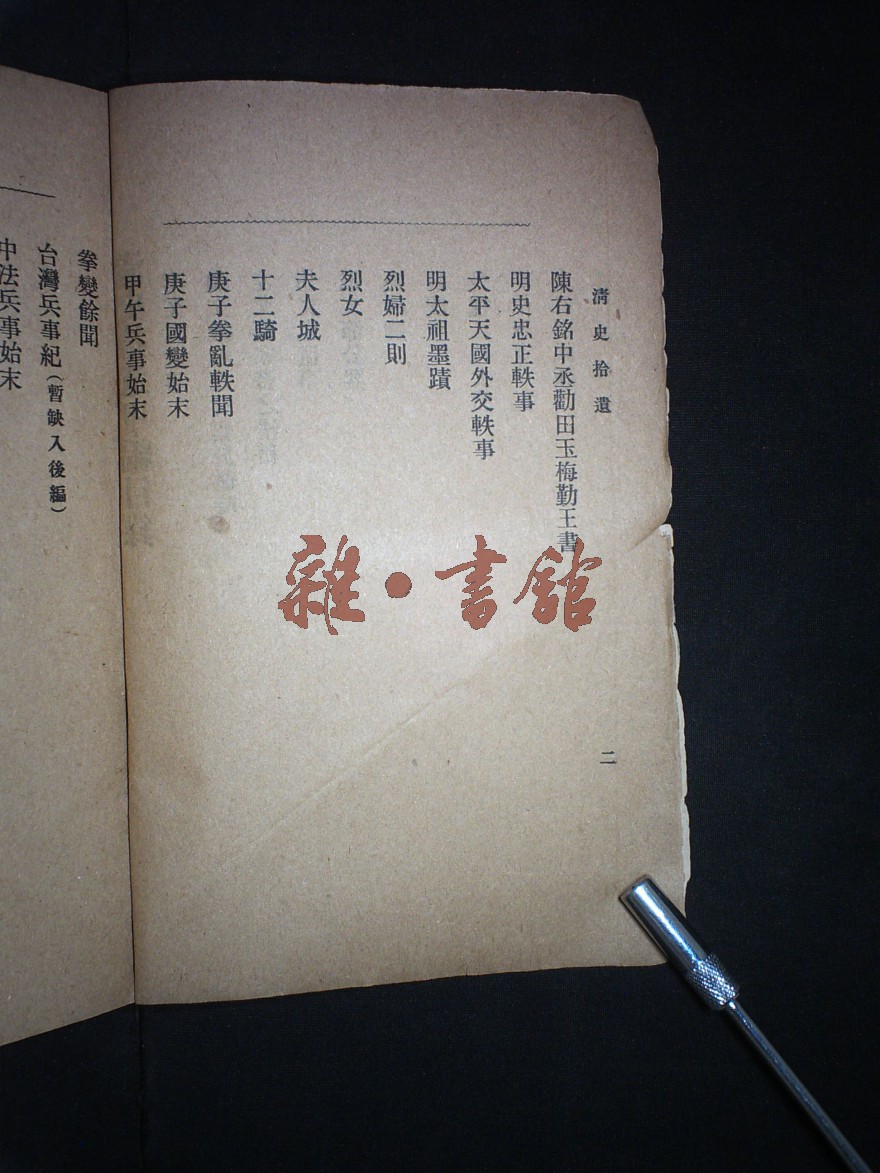 清史拾遺
二
陳右銘中丞勸田玉梅勤王書
明史忠正軼事
太平天國外交軼事
明太祖墨蹟
烈婦二則
烈女
夫人城
十二騎
庚子拳亂軼聞
庚子國變始末
甲午兵事始末
拳變餘聞
台灣兵事紀（暫缺入後編）
中法兵事始末
雜·書館